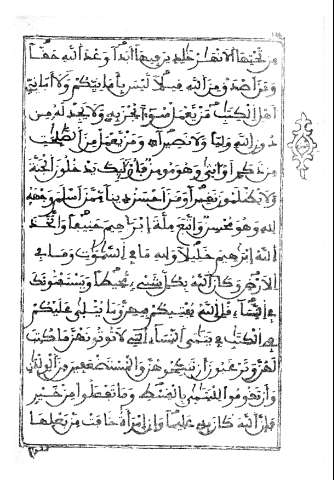 من تحتها الانهر خلدين فيها أبدا وعد الله حقا
ومن أصدق من الله قيلا ليس بأمانيكم ولا أماني
أهل الكتب من يعمل سوءا يجز به ولا يجد له من
دون الله وليا ولا نصيرا ومن يعمل من الصلحت
من ذكر أو انثى وهو مومن فأوليك يدخلون الجنة
ولا يظلمون نقيرا ومن احسن دينا ممن اسلم وجهه
لله وهو محسن واتبع ملة إبرهيم حنيفا واتخذ
الله إبرهيم خليلا ولله ما في السموت وما في
الارض وكان الله بكل شيء محيطا ويستفتونك
في النساء قل الله يفتيكم فيهن وما يتلى عليكم
في الكتب في يتمى النساء التي لا توتونهن ما كتب
لهن وترغبون أن تنكحوهن والمستضعفين من الولدن
وأن تقوموا لليتمى بالقسط وما تفعلوا من خير
فإن الله كان به عليما وإن امرأة خافت من بعلها